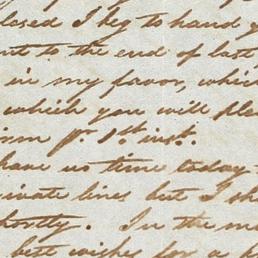 closed I beg to hand y
nt to the end of last
in my favor, whic
which you will plea
ism pr. 1st inst.
have no time today
ivate lines but I sh
shortly. In the m
best wishes for a